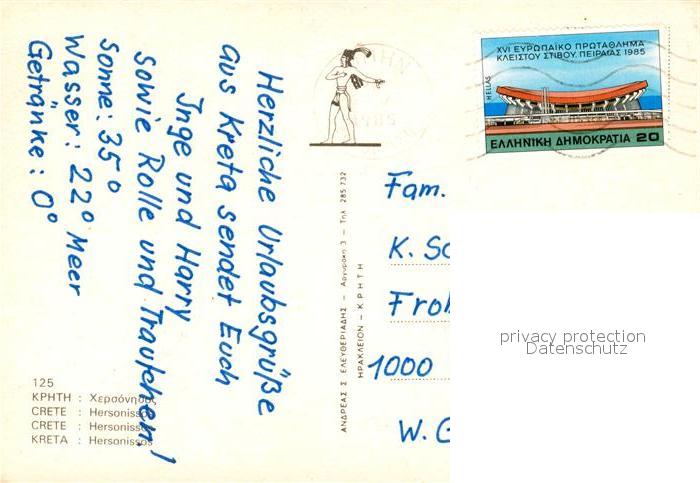 Herzliche Urlaubsgrüße
aus Kreta sendet Euch
Inge und Harry
sowie Rolle und Traufchen!
Sonne: 35°
Wasser: 22° Meer
Getränke: 0°
125
ΚΡΗΤΗ : Χερσόνησος
CRETE : Hersonissos
CRETE : Hersonissos
KRETA : Hersonissos
ΑΝΔΡΕΑΣ Σ ΕΛΕΥΘΕΡΙΑΔΗΣ – Αργυράκη 3 – Τηλ 285 732
ΗΡΑΚΛΕΙΟΝ – ΚΡΗΤΗ
XVI ΕΥΡΩΠΑΙΚΟ ΠΡΩΤΑΘΛΗΜΑ
ΚΛΕΙΣΤΟΥ ΣΤΙΒΟΥ, ΠΕΙΡΑΙΑΣ 1985
HELLAS
ΕΛΛΗΝΙΚΗ ΔΗΜΟΚΡΑΤΙΑ 20
Fam.
K. Sc
Froh
1000
W. G
privacy protection
Datenschutz